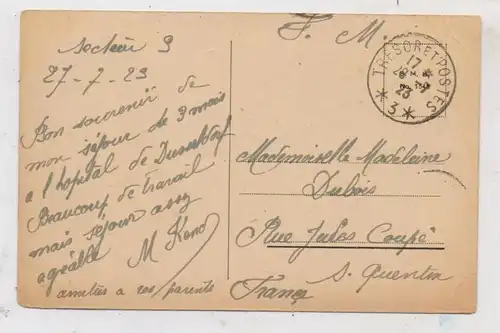 Secteur 3
27-7-23
Bon souvenir de
mon séjour de 3 mois
a l'hopital de Dusseldorf
Beaucoup de travail
mais séjour assez
agréable M
amitiés a vos parents
F. M.
TRESOR ET POSTES
17
23
* 3 *
Mademoiselle Madeleine
Dubois
Rue Jules Coupé
S. Quentin
France